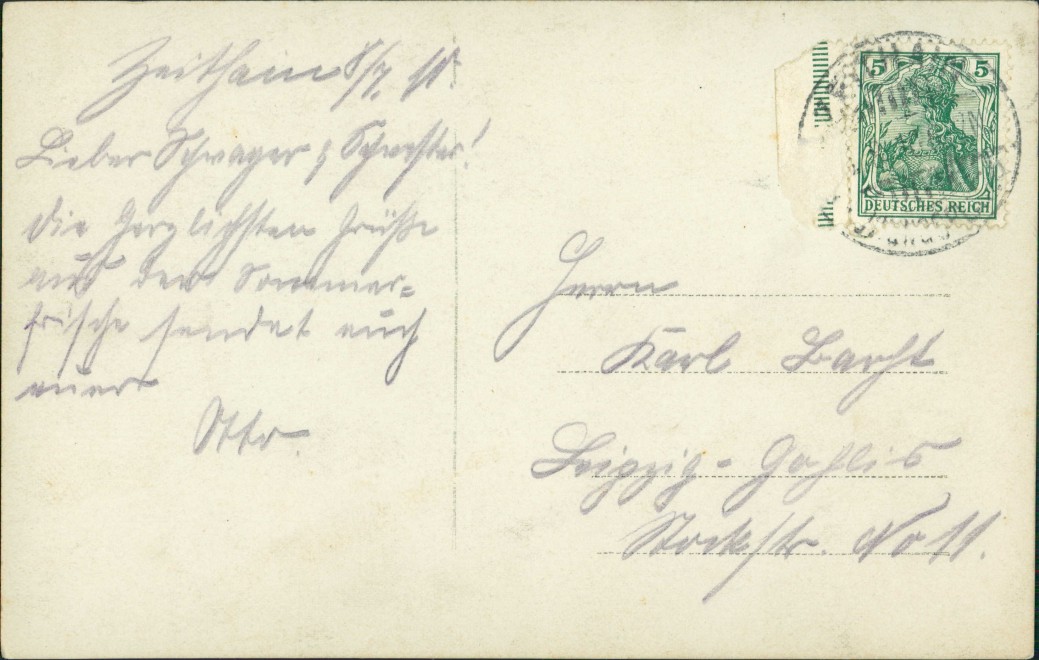 Zeithain 8/7. 11.
Lieber Schwager & Schwester!
die herzlichsten Grüße
aus der Sommer=
frische sendet euch
euer
Otto.
5 5
DEUTSCHES REICH
Herrn
Karl Barht
Leipzig - Gohlis
Stockstr. No 11.